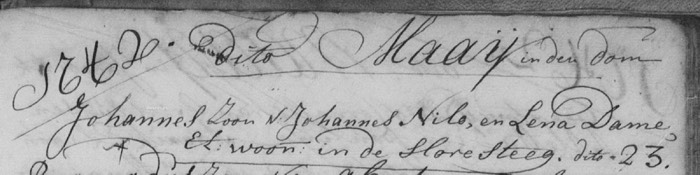 1742. dito Maaij in den dom
Johannes Zoon v. Johannes Nilo, en Lena Dame,
Et. woon: in de slore steeg. dito - 23.